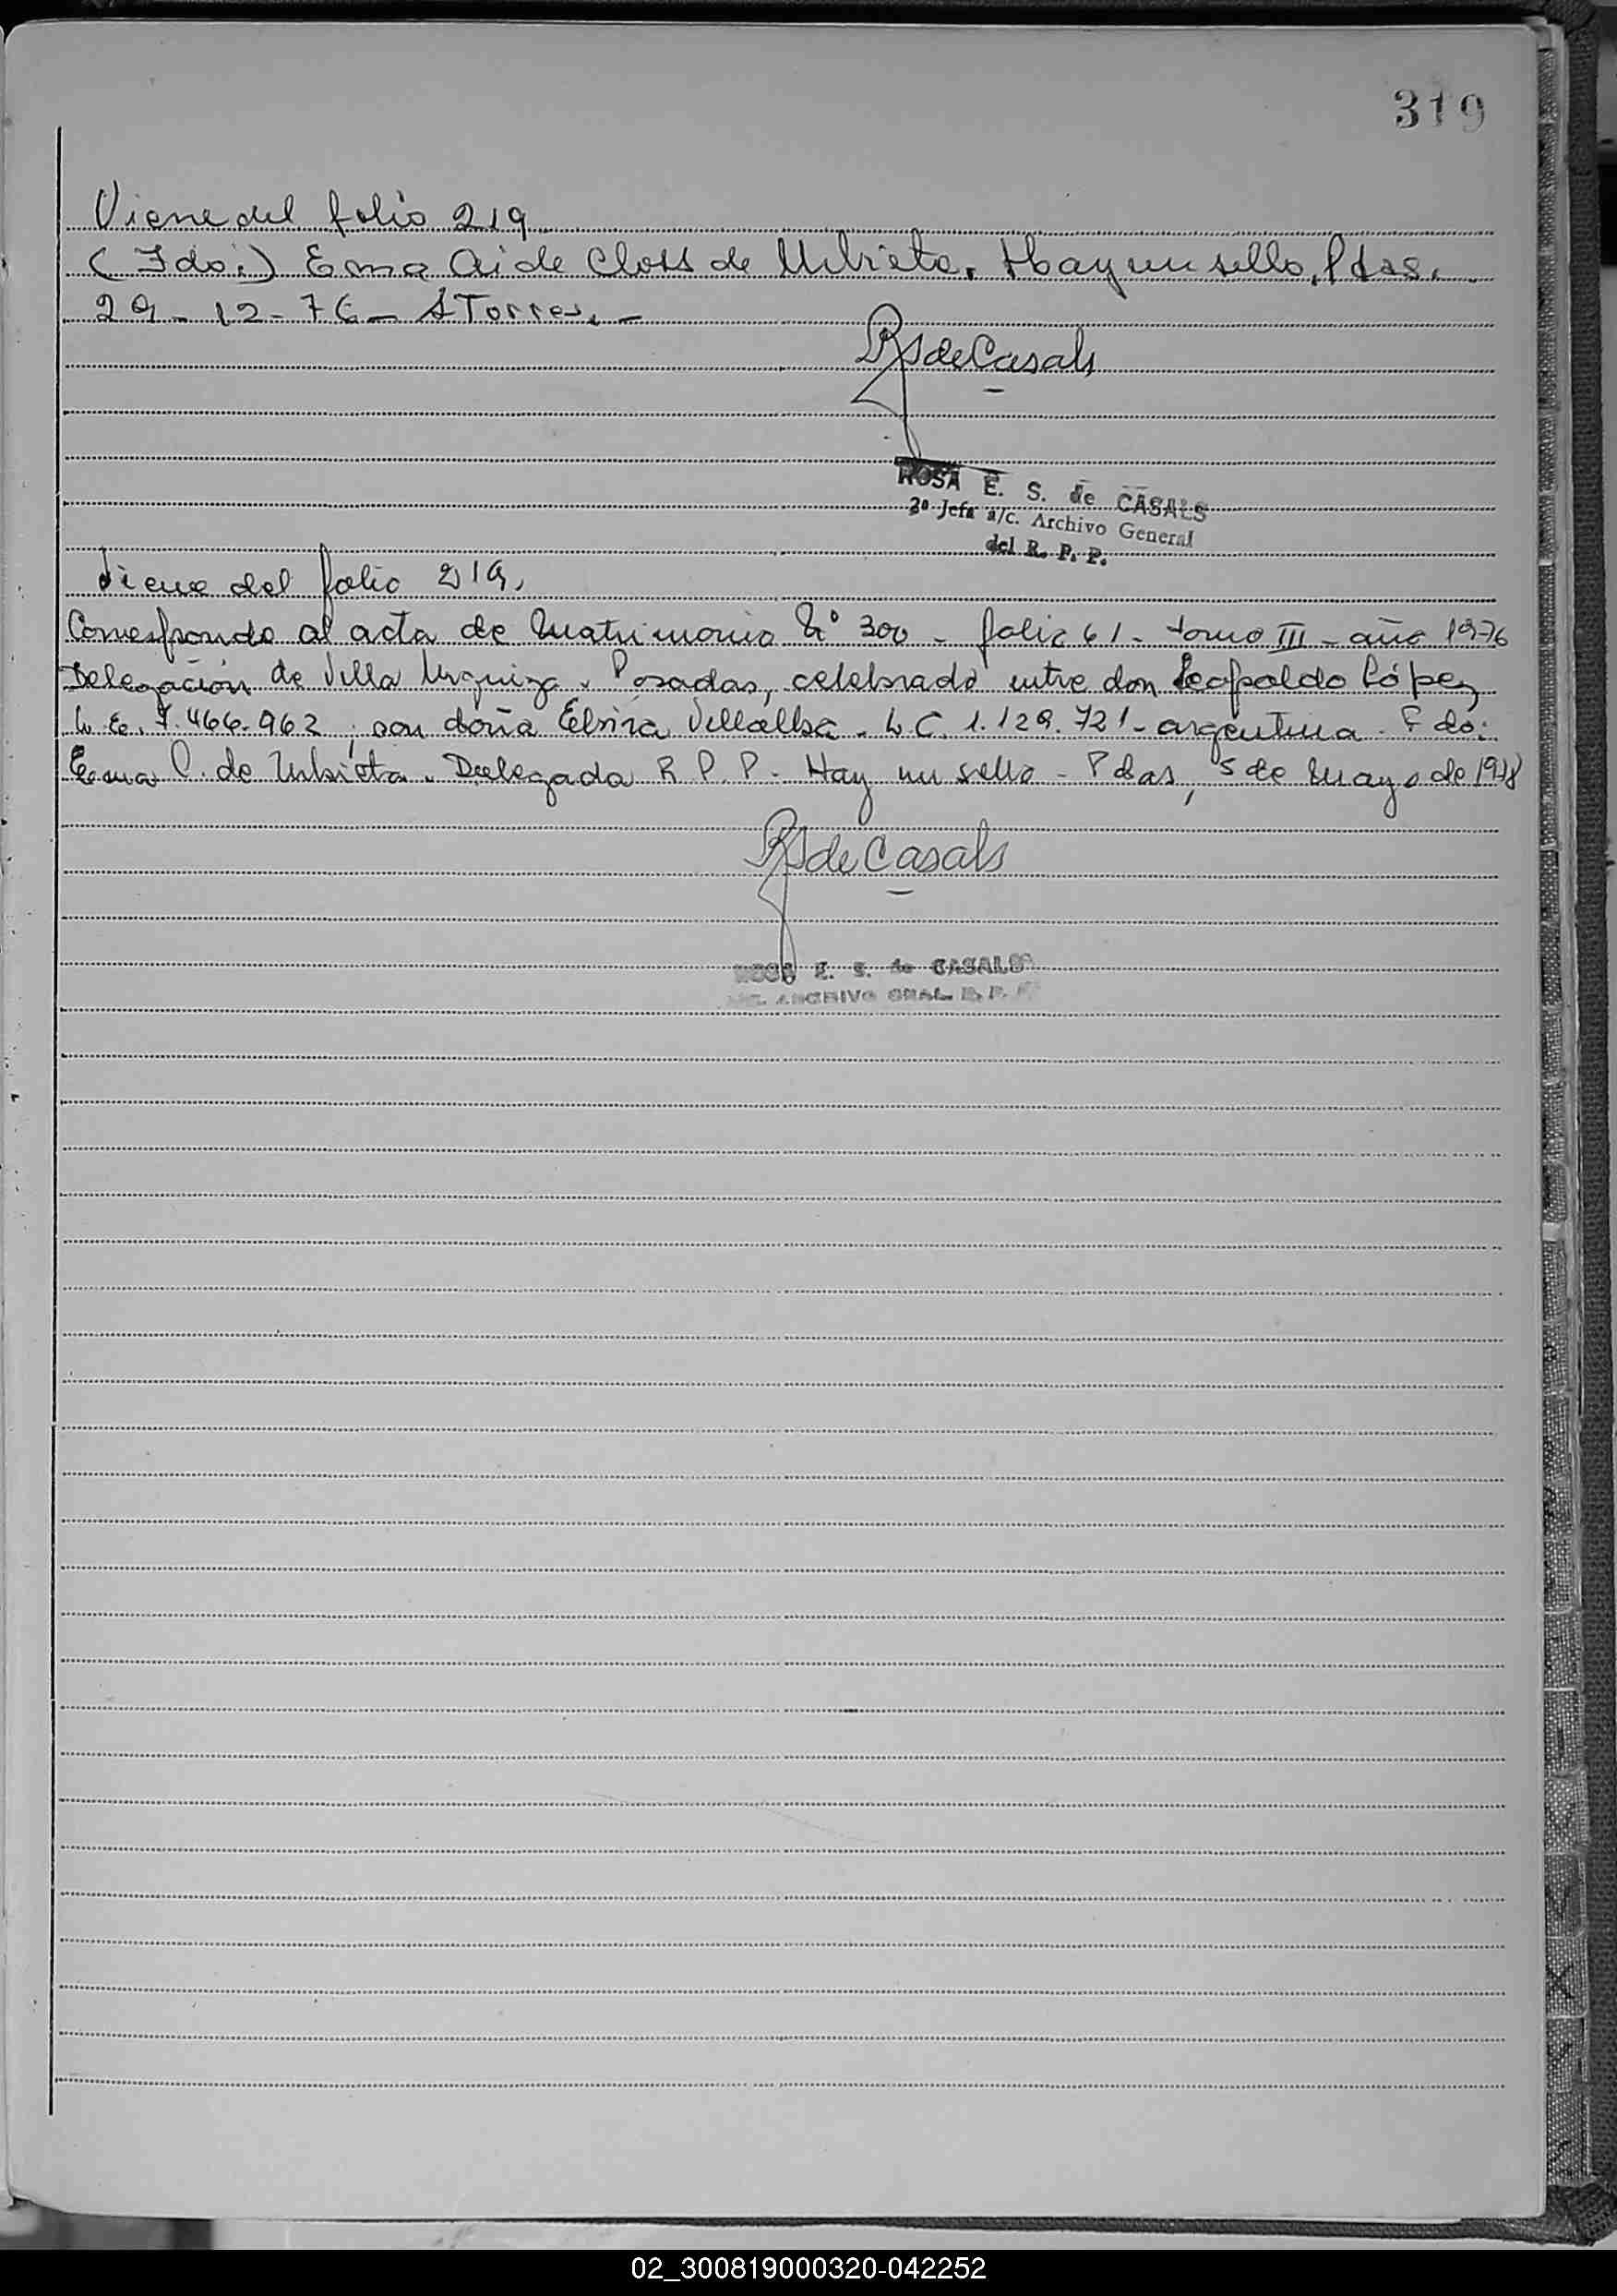 319
Viene del folio 219
(Fdo:) Ema Aide Closs de Urbieta. Hay un sello. Pdas.
29-12-76- A Torres.-
RSdeCasals
ROSA E. S. de CASALS
2ª Jefa a/c. Archivo General
del R. P. P.
Viene del folio 219.
Corresponde al acta de Matrimonio Nº 300 - folio 61 - tomo III - año 1976
Delegación de Villa Urquiza. Posadas, celebrado entre don Leopoldo López
L.E. 7.466.962; con doña Elvira Villalba. L C. 1.129.721 - argentina. Fdo:
Ema C. de Urbieta. Delegada R P. P. Hay un sello - Pdas, 5 de Mayo de 1978
RSdeCasals
ROSA E. S. de CASALS
ARCHIVO GRAL. R. P. P.
02_300819000320-042252